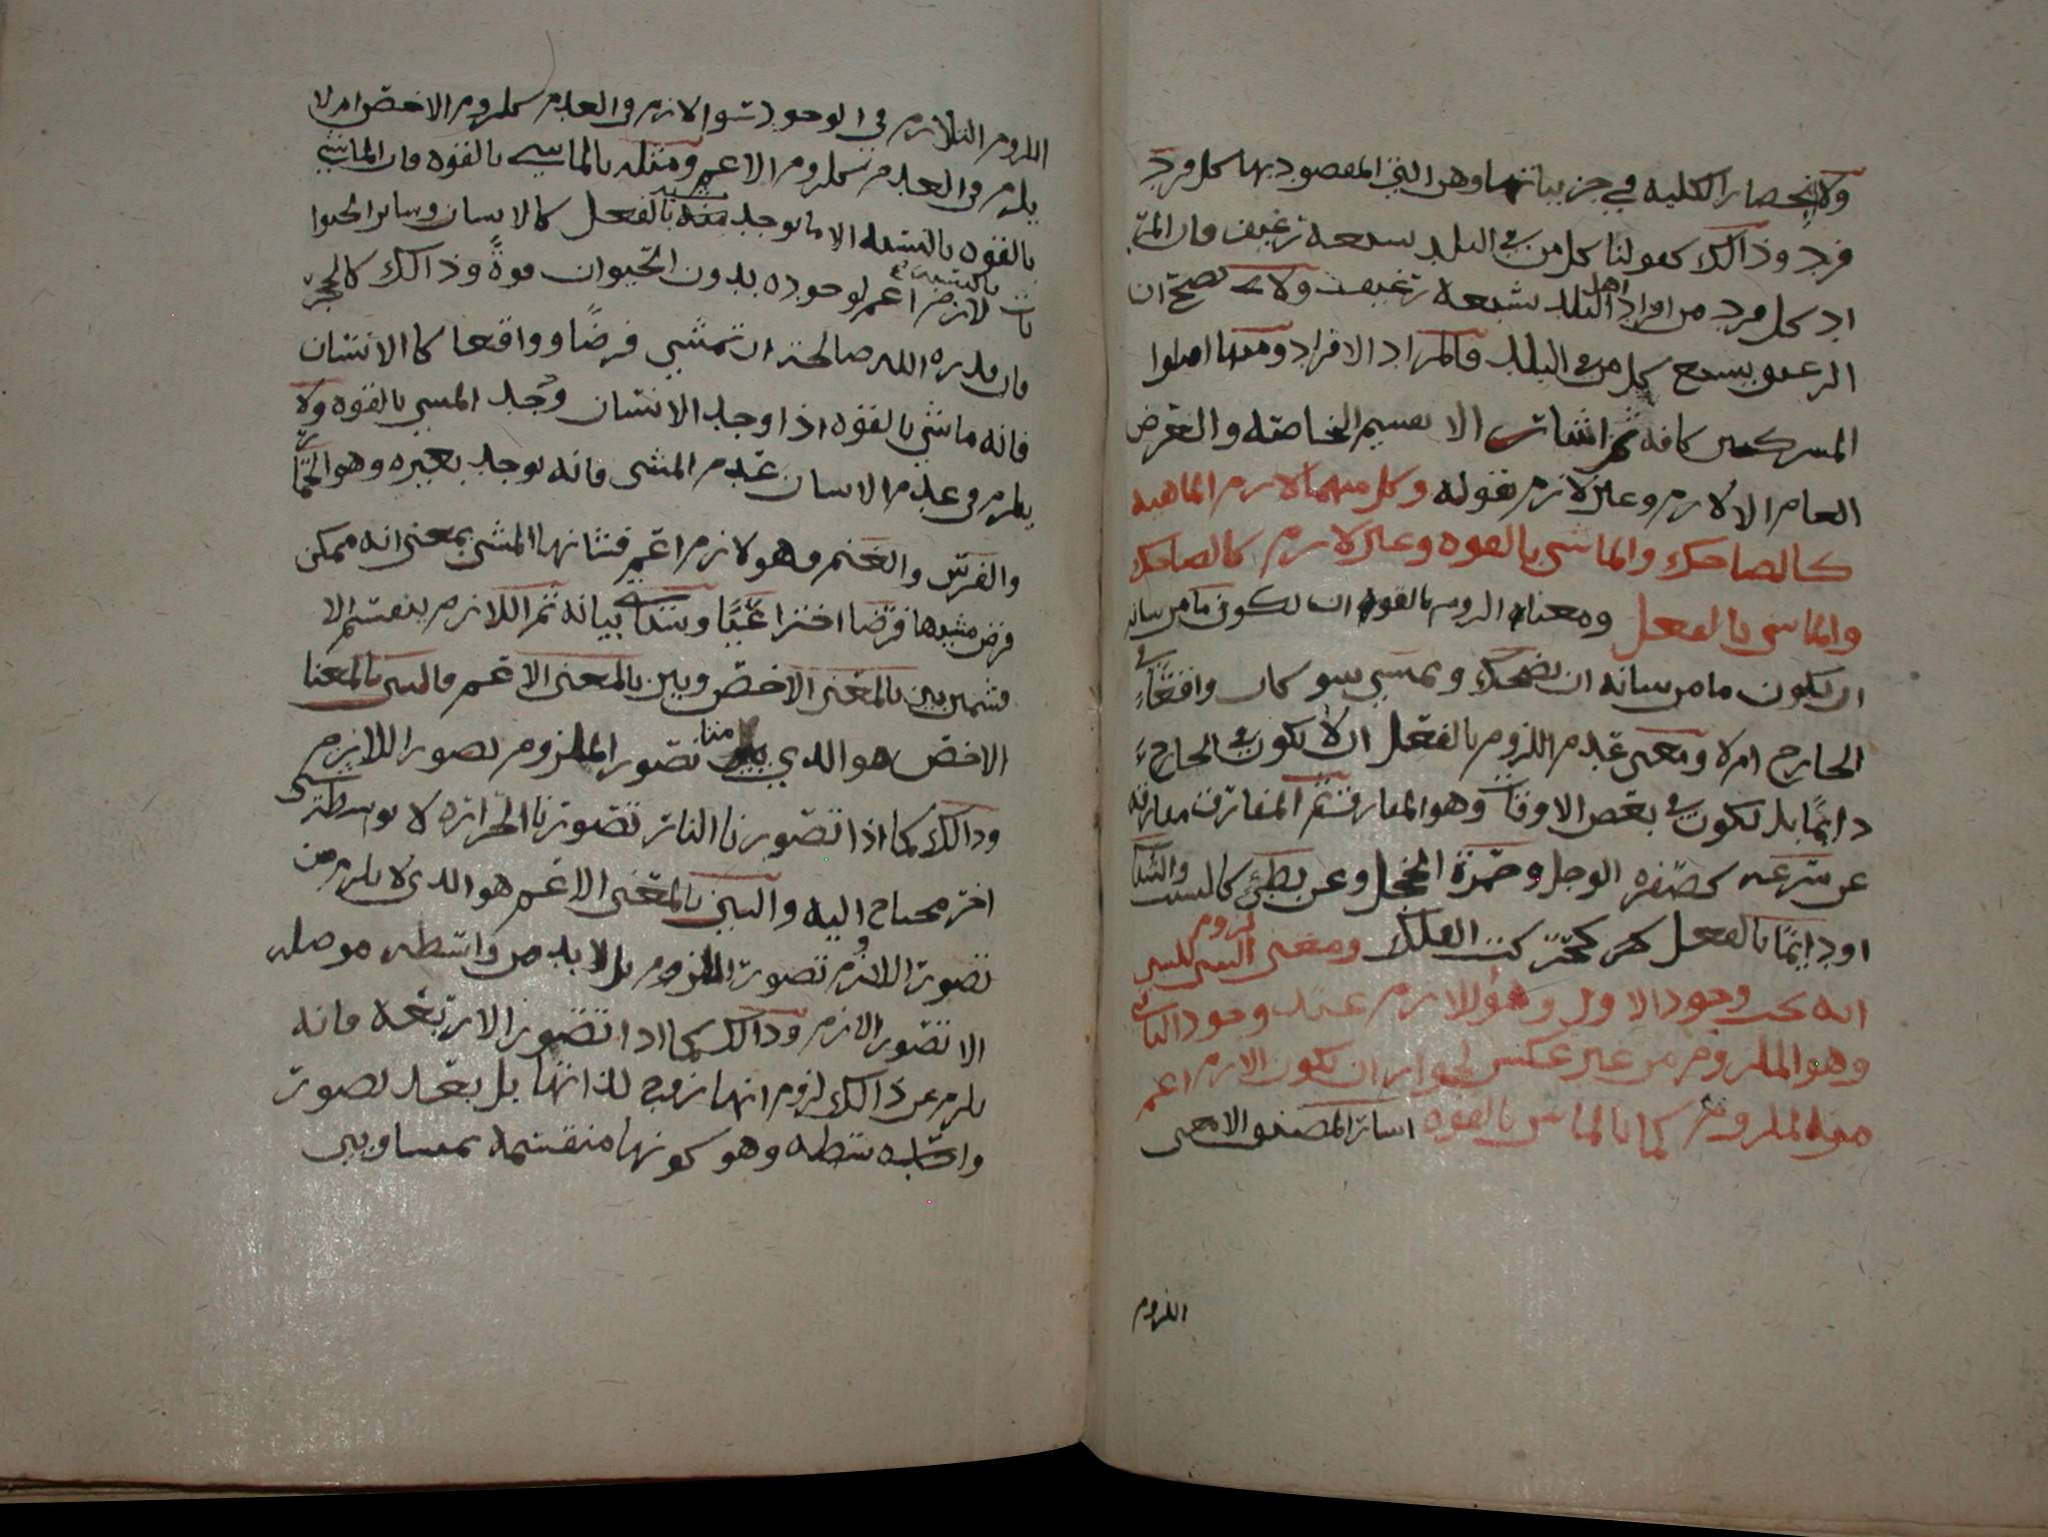 ولانحصار الكليه في جزيياتها وهى التي المقصود بها كل فرد
فرد وذالك كقولنا كل من في البلد يشبعه رغيف فان المر
اد كل فرد من افراد اهل البلد يشبعه رغيف ولا يصح ان
الرغيف يشبع كل من في البلد فالمراد الافراد ومنه اقتلوا
المشركين كافه ثم اشار الا تقسيم الخاصه والعرض
العام الا لازم وغير لازم بقوله وكل منهما لازم الماهيه
كالضاحك والماشي بالقوه وغير لازم كالضاحك
والماشي بالفعل ومعناه اللزوم بالقوه ان تكون ما من شانه
ان يكون ما من شانه ان يضحك ويمشي سو كان واقعًا في
الخارج ام لا ومعنى عدم اللزوم بالفعل ان لا يكون في الخارج
دايمًا بل يكون في بعض الاوقات وهو المفارق ثم المفارق مفارقه
عن سرعه كصفره الوجل وحمرة الخجل وعن بطئ كالشيب والشباب
او دايمًا بالفعل كتحرك الفلك ومعنى لزوم الشي للشي
انه يجب وجود الاول وهو اللازم عند وجود الثاني
وهو الملزوم من غير عكس لجواز ان يكون الازم اعم
من الملزوم كما بالماشي بالقوه اشار المصنف الا معنى
اللزوم
اللزوم التلازم في الوجود سوا لازم في العدم كلزوم الاخص ام لا
يلزم في العدم كلزوم الاعم ومثله بالماشي بالقوه فان الماشي
بالقوه بالنسبه الا ما يوجد منه بالفعل كالانسان وساير الحيوا
نات لازم اعم لوجوده بدون الحيوان قوةً وذالك كالحجر
فان قدره الله صالحة ان تمشي فرضًا وواقعا كالانسان
فانه ماشي بالقوه اذا وجد الانسان وجد المشي بالقوه ولا
يلزم في عدم الانسان عدم المشى فانه يوجد بغيره وهو الحمار
والفرس والغنم فهو لازم اعم فشانها المشى بمعنى انه ممكن
فرض مشيها فرضا اختراعيًا وسياتي بيانه ثم اللازم ينقسم الا
قسمين بين بالمعنى الاخص وبين بالمعنى الاعم فالبين بالمعنا
الاخص هو الذي يلزم من تصور الملزوم تصور اللازم
وذالك كما اذا تصورنا النار تصورنا الحراره لا بوسطة شي
اخر محتاج اليه والبين بالمعنى الاعم هو الذي لا يلزم من
تصور اللازم تصور الملزوم بل لا بد من واسطه موصله
الا تصور الازم وذالك كما اذا تصور الاربعه فانه
يلزم من ذالك لزوم انها زوج لذاتها بل بعد تصور
واسطه وهو كونها منقسمه بمساويين